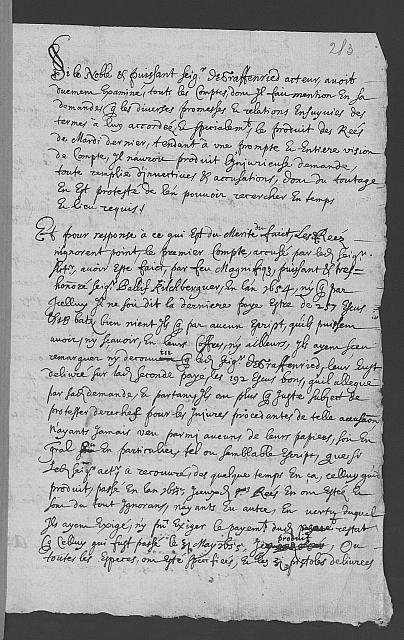 213
Si le Noble & puissant Seigr. de Graffenried acteur, avoit
duement Examiné, touts les Comptes, dont Il fait mention En sa
demande, & les diverses promesses & relations Ensuyvies des
termes a luy accordés, & specialemt. le produit des Rees
de Mardi dernier, tendant à une prompte & Entiere vision
de Compte, Il n'auroit produit Injurieuse demande,
toute remplie d'invectives & accusations, dont du toutage
En Est protesté de l'en pouvoir rechercher En temps
& lieu requis /
Et pour response a ce qui Est du Merite du faict, Les Rees
n'ignorent point, le premier Compte, accusé par led. Seigr.
Actr. avoir Esté faict, par feu Magnifiq, puissant & tres
honoré Seigr. Balif En l'an 1654, ny q par
Icelluy Il ne soit dit la derniere paye Estre de 257 Escus
batz, bien nient Ils q par aucun Escript, quils puissent
avoir, ny scavoir, En leurs Coffres, ny allieurs, Ils ayent sceu
remarquer ny decouvrir q led. Seigr. de Graffenried, leur Eust
delivré sur lad. seconde paye, les 192 Escus bons, quil allegue
par sad. demande, & partant, Ils ont plus q Juste subject de
protester derechef pour les Injures procedantes de telle accusaon
n'ayants Jamais veu parmi aucuns de leurs papiers, soit En
gnal ou En particulier, tel ou semblable Escript, que si
led. Seigr. actr. a recouvré, des quelque temps En ça, celluy quil
produit, passé En l'an 1657, les Rees En ont Esté &
sont du tout Ignorans, n'ayants En autre, En vertu duquel
Ils ayent Exigé, ny peu Exiger le payemt. dud. restat
q Celluy qui fust passé le 31 May 1655, produit, Ou
toutes les Especes, ont Esté specifiees, & les 31 pistoles delivrées